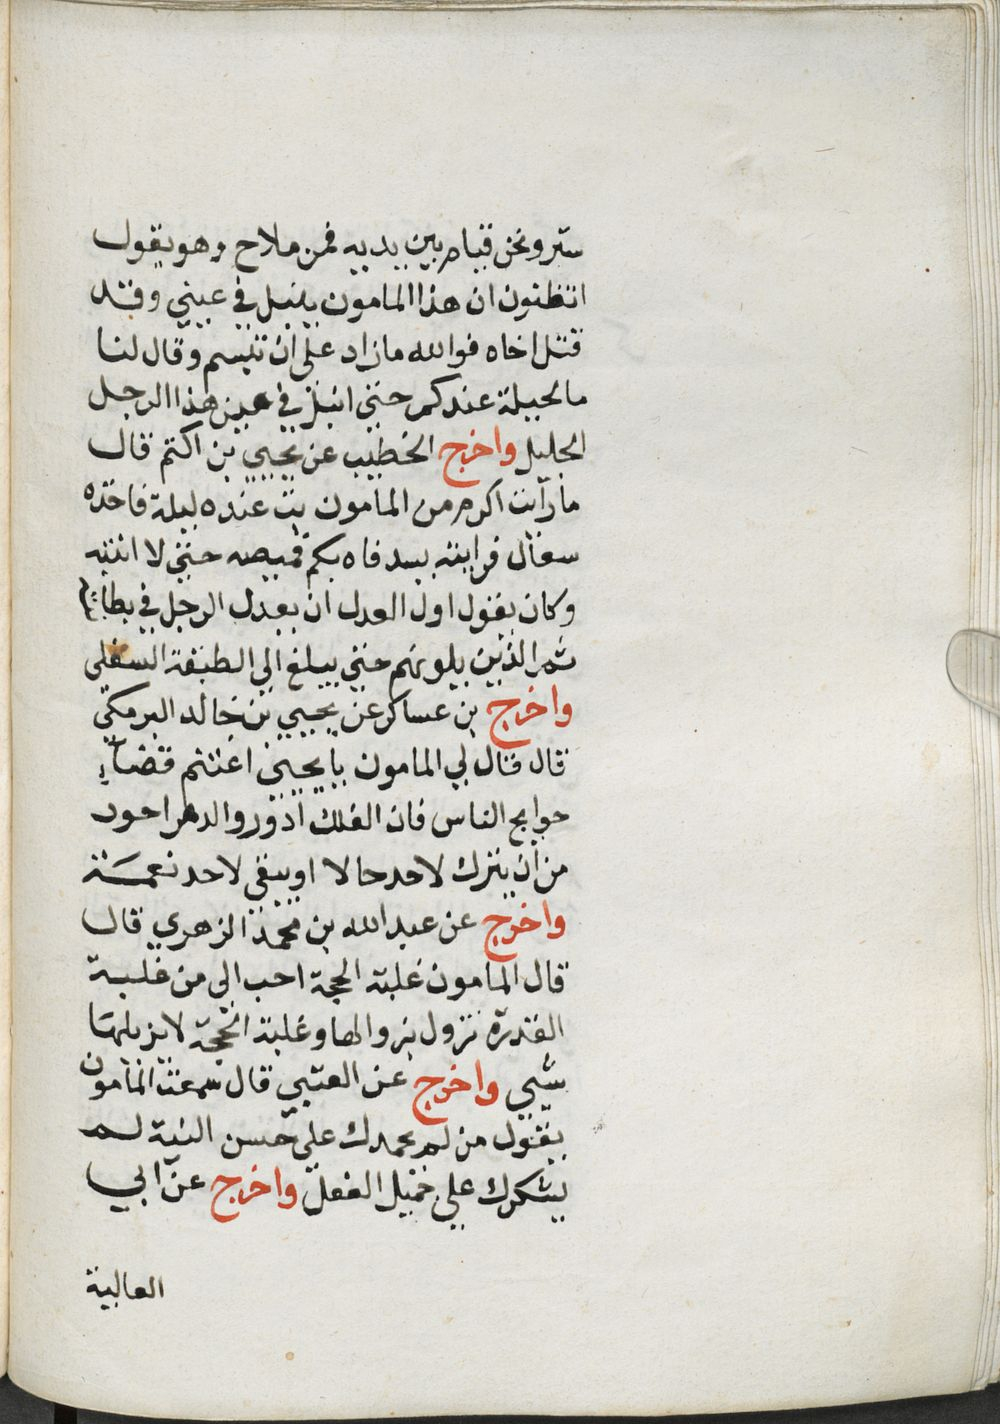 ستر ونحن قيام بين يديه فمر ملاح وهو يقول
اتظنون ان هذا المامون ينبل في عيني وقد
قتل اخاه فوالله ما زاد على ان تبسم وقال لنا
ما الحيلة عندكم حتى انبل في عين هذا الرجل
الجليل واخرج الخطيب عن يحيي بن اكتم قال
ما رايت اكرم من المامون بت عنده ليلة فاخذه
سعال فرايته يسد فاه بكم قميصه حتى لا انتبه
وكان يقول اول العدل ان يعدل الرجل في بطانته
ثم الذين يلونهم حتى يبلغ الى الطبقة السفلى
واخرج بن عساكر عن يحيي بن خالد البرمكي
قال قال لي المامون يا يحيى اغتنم قضاء
حوايج الناس فان الفلك ادور والدهر اجور
من ان يترك لاحد حالا او يبقى لاحد نعمة
واخرج عن عبد الله بن محمد الزهري قال
قال المامون غلبة الحجة احب الى من غلبة
القدرة تزول بزوالها وغلبة الحجة لا يزيلها
شي واخرج عن العتبي قال سمعت المامون
يقول من لم يحمدك على حسن النية لم
يشكرك على جميل الفعل واخرج عن ابي
العالية